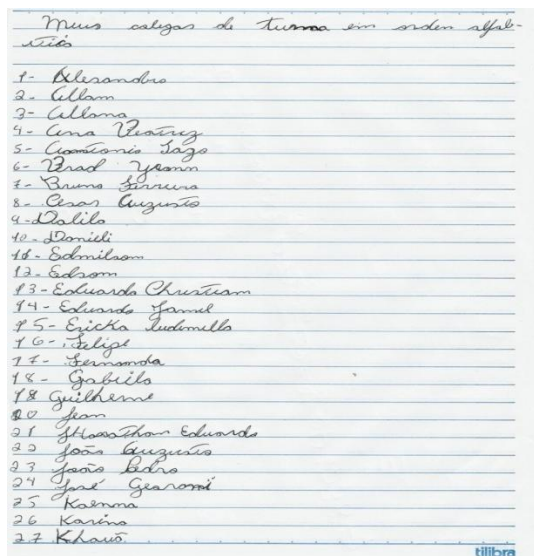 Meus colegas de turma em orden alfab-
eticos
1- Alexandro
2- Allam
3- Allana
4- Ana Beatriz
5- Antonio Iago
6- Brad Yeann
7- Bruno Ferreira
8- Cesar Augusto
9- Dalila
10- Danieli
11- Edmilsom
12- Edsom
13- Eduardo Christiam
14- Eduardo Jamil
15- Ericka ludimilla
16- Felipe
17- Fernanda
18- Gabriela
18 Guilherme
20 Jean
21 Eduardo
22 João Augusto
23 João Pedro
24 José
25 Kaenna
26 Karina
27
tilibra